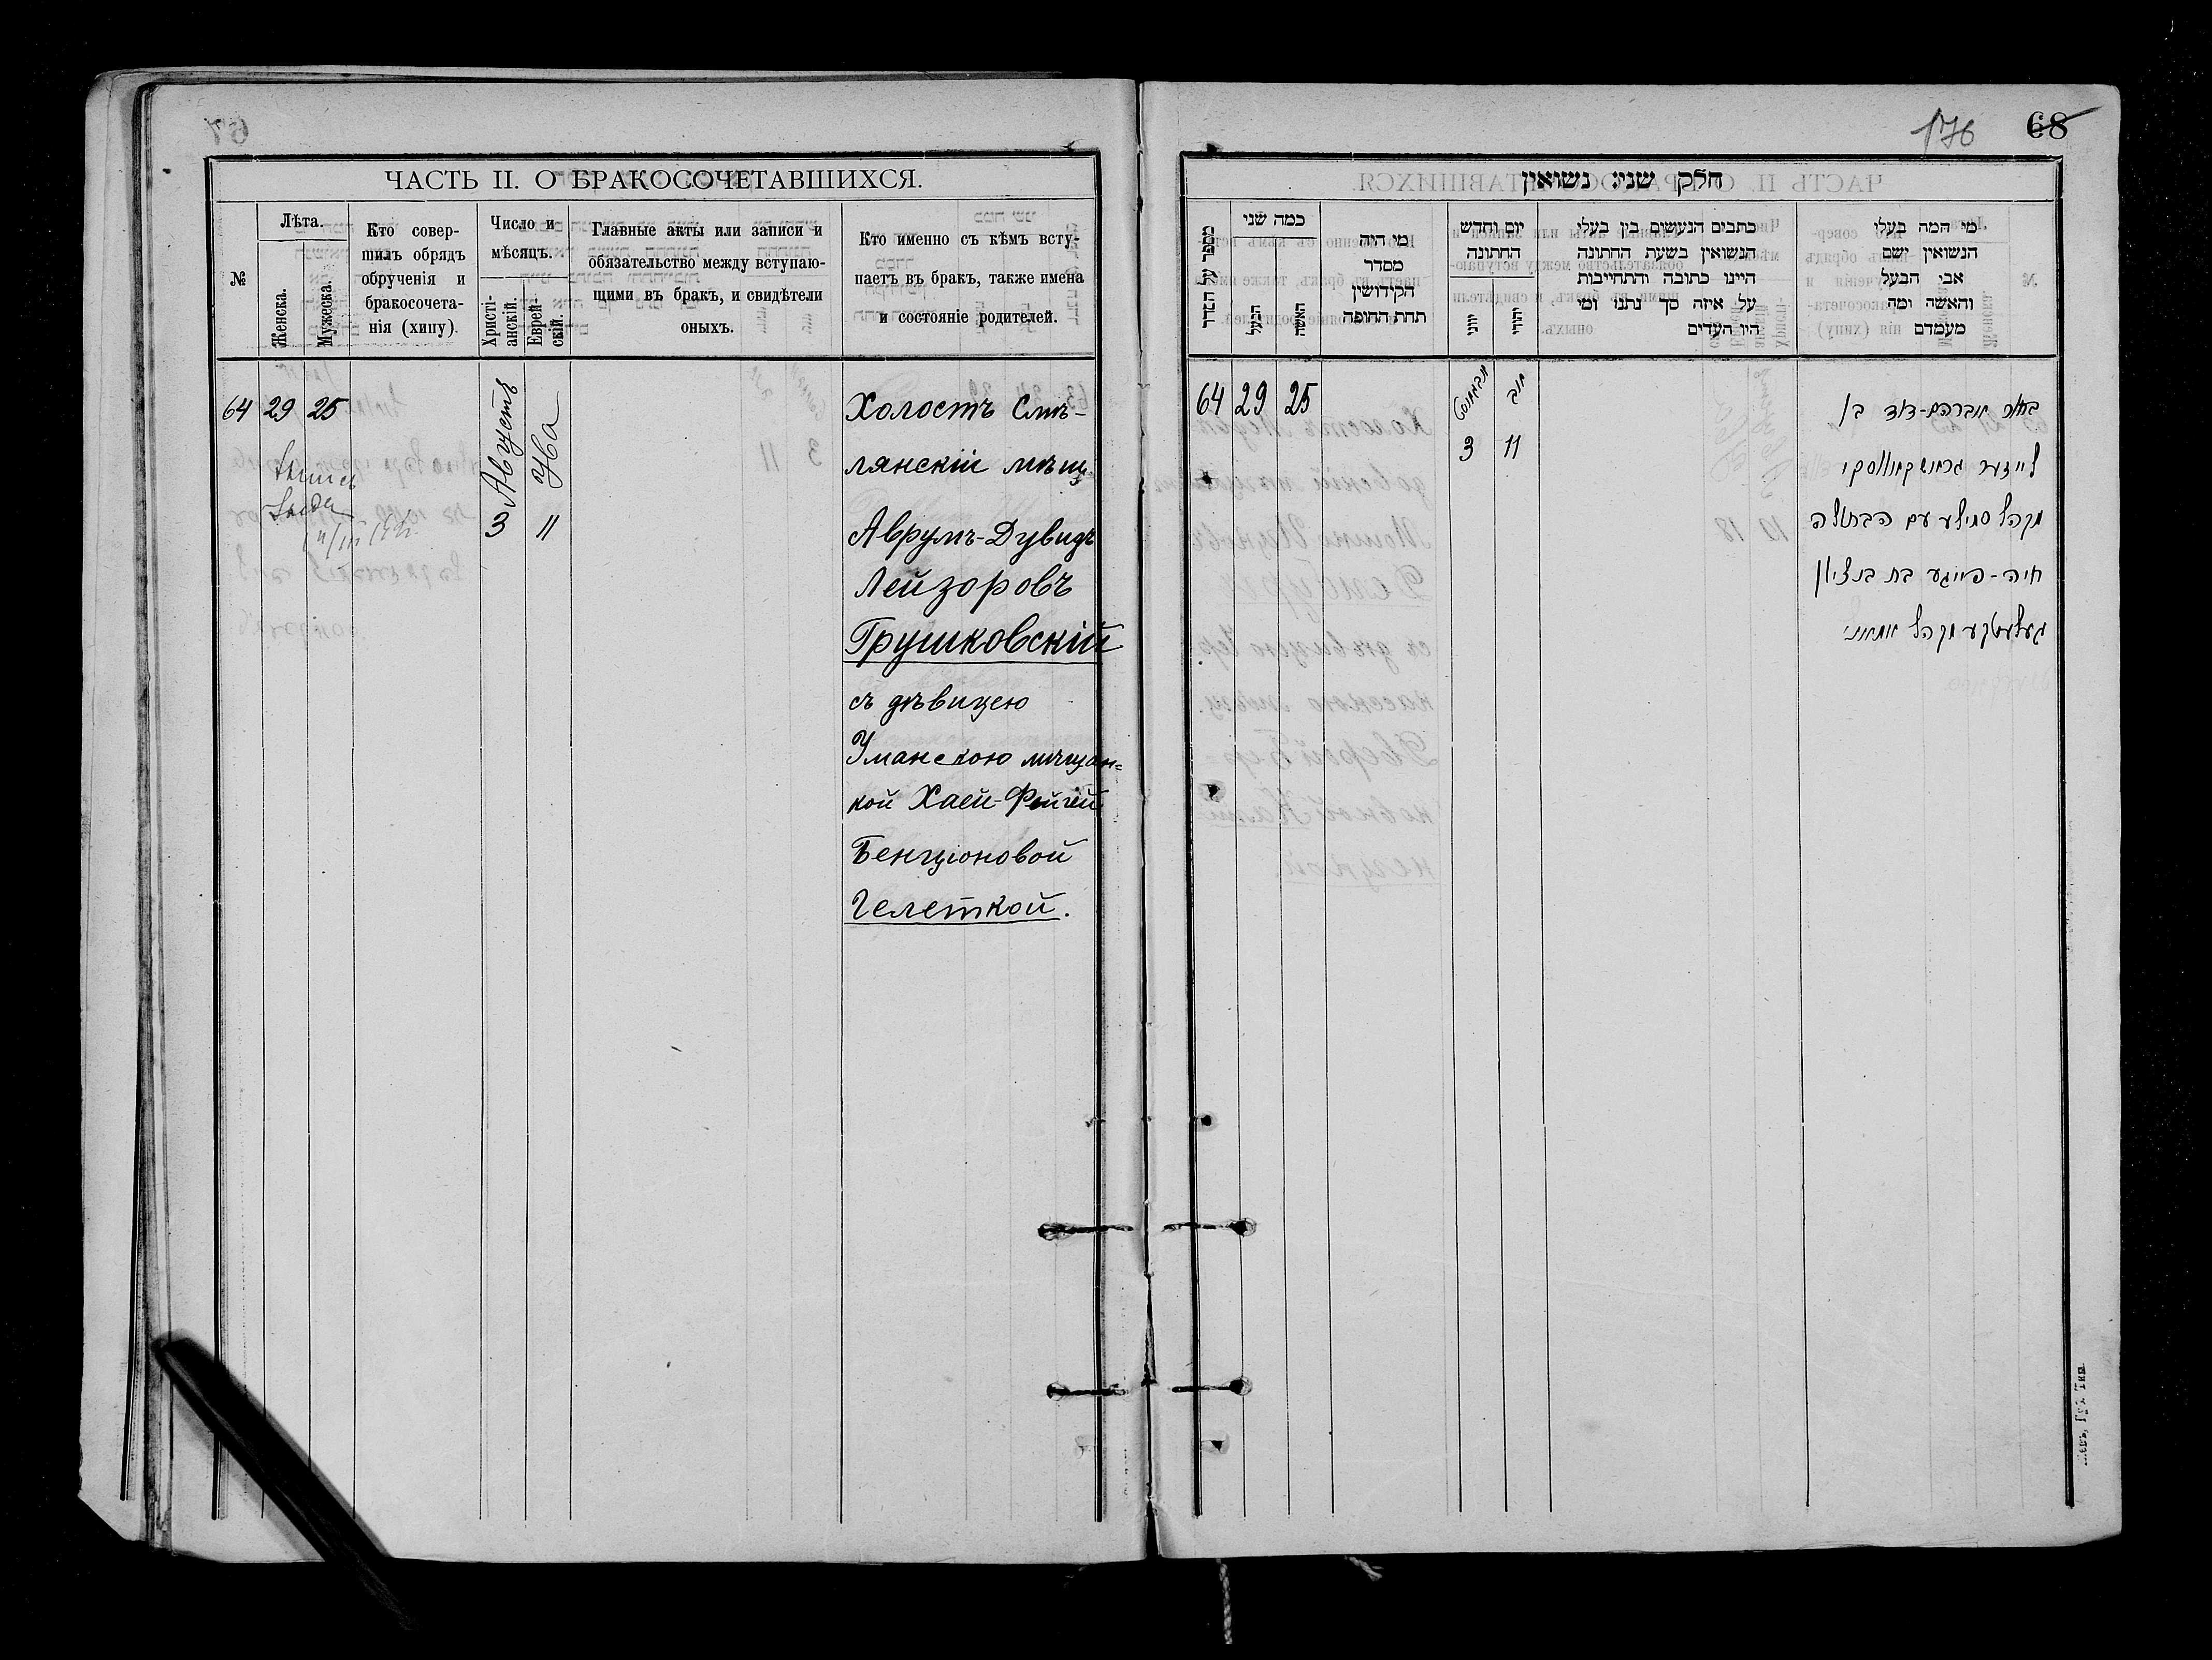 ЧАСТЬ II. О БРАКОСОЧЕТАВШИХСЯ.
№
Лѣта.
Женска.
Мужеска.
Кто совер-
шилъ обрядъ
обрученія и
бракосочета-
нія (хипу).
Число и
мѣсяцъ.
Христі-
анскій.
Еврей-
скій.
Главные акты или записи и
обязательство между вступаю-
щими въ бракъ, и свидѣтели
оныхъ.
Кто именно съ кѣмъ всту-
паетъ въ бракъ, также имена
и состояніе родителей.
64 29 25
Августъ
3
Ува
11
Холостъ Смѣ-
лянскій мѣщ.
Аврумъ-Дувидъ
Лейзоровъ
Грушковскій
съ дѣвицею
Уманскою мѣщан=
кой Хаей-Фейгей
Бенціоновой
Гелеткой.
176 68
חלק שני: נשואין
מספר על הסדר
כמה שני
הבעל
האשה
מי היה
מסדר
הקידושין
תחת החופה
יום וחדש
החתונה
יוני
יהודי
כתבים הנעשים בין בעלי
הנשואין בשעת החתונה
היינו כתובה והתחייבות
על איזה סך נתנו ומי
היו העדים
מי המה בעלי
הנשואין ושם
אבי הבעל
והאשה ומה
מעמדם
64 29 25
אבגוסט
3
אוב
11
בחור אברהם-דוד בן
לייזער גרושקאווסקי
מקהל סמילע עם הבתולה
חיה-פייגע בת בנציון
געלעטקע מקהל אומאני